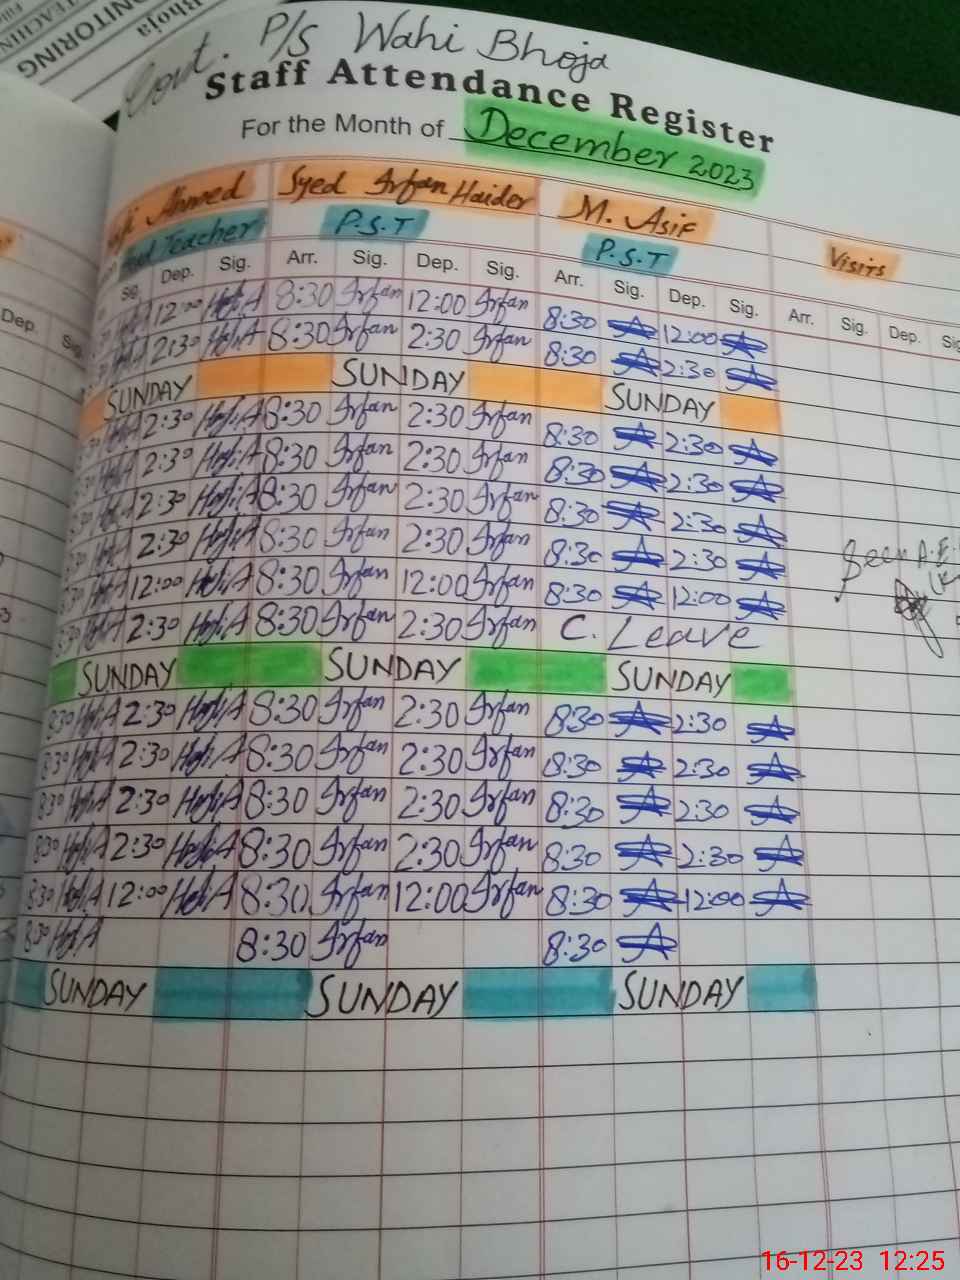 Bhoja
NITORING
TEACHIN
Govt. P/S Wahi Bhoja
Staff Attendance Register
For the Month of December 2023
Ahmed Syed Irfan Haider M. Asif Visits
Teacher P.S.T P.S.T
Dep. Sig. Sig. Dep. Sig. Arr. Sig. Dep. Sig. Arr. Sig. Dep. Sig. Arr. Sig. Dep. Sig
12:00 Hafi.A 8:30 Irfan 12:00 Irfan 8:30 A 12:00 A
2:30 Hafi.A 8:30 Irfan 2:30 Irfan 8:30 A 2:30 A
SUNDAY SUNDAY SUNDAY
2:30 Hafi.A 8:30 Irfan 2:30 Irfan 8:30 A 2:30 A
2:30 Hafi.A 8:30 Irfan 2:30 Irfan 8:30 A 2:30 A
2:30 Hafi.A 8:30 Irfan 2:30 Irfan 8:30 A 2:30 A
2:30 Hafi.A 8:30 Irfan 2:30 Irfan 8:30 A 2:30 A
12:00 Hafi.A 8:30 Irfan 12:00 Irfan 8:30 A 12:00 A Seen A.E.
8:30 Hafi.A 2:30 Hafi.A 8:30 Irfan 2:30 Irfan C. Leave
SUNDAY SUNDAY SUNDAY
8:30 Hafi.A 2:30 Hafi.A 8:30 Irfan 2:30 Irfan 8:30 A 2:30 A
8:30 Hafi.A 2:30 Hafi.A 8:30 Irfan 2:30 Irfan 8:30 A 2:30 A
8:30 Hafi.A 2:30 Hafi.A 8:30 Irfan 2:30 Irfan 8:30 A 2:30 A
8:30 Hafi.A 2:30 Hafi.A 8:30 Irfan 2:30 Irfan 8:30 A 2:30 A
8:30 Hafi.A 12:00 Hafi.A 8:30 Irfan 12:00 Irfan 8:30 A 12:00 A
8:30 Hafi.A 8:30 Irfan 8:30 A
SUNDAY SUNDAY SUNDAY
16-12-23 12:25